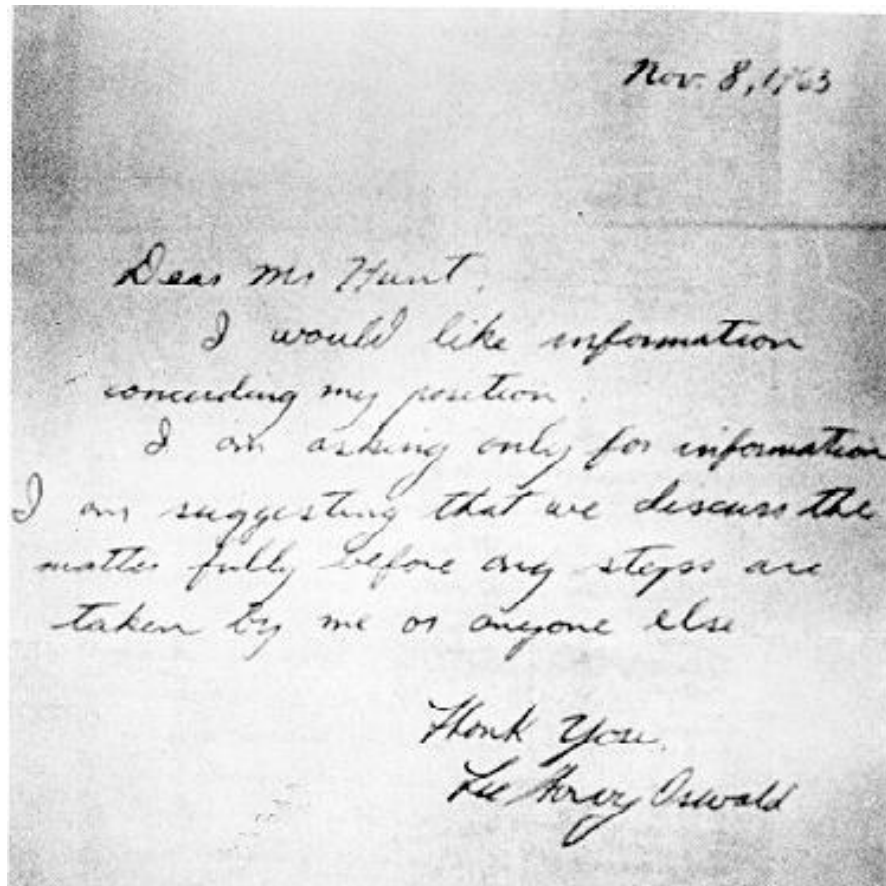 Nov. 8, 1963
Dear Mr Hunt,
I would like information
concerding my position.
I am asking only for information
I am suggesting that we discuss the
matter fully before any steps are
taken by me or anyone else
Thank You,
Lee Harvey Oswald